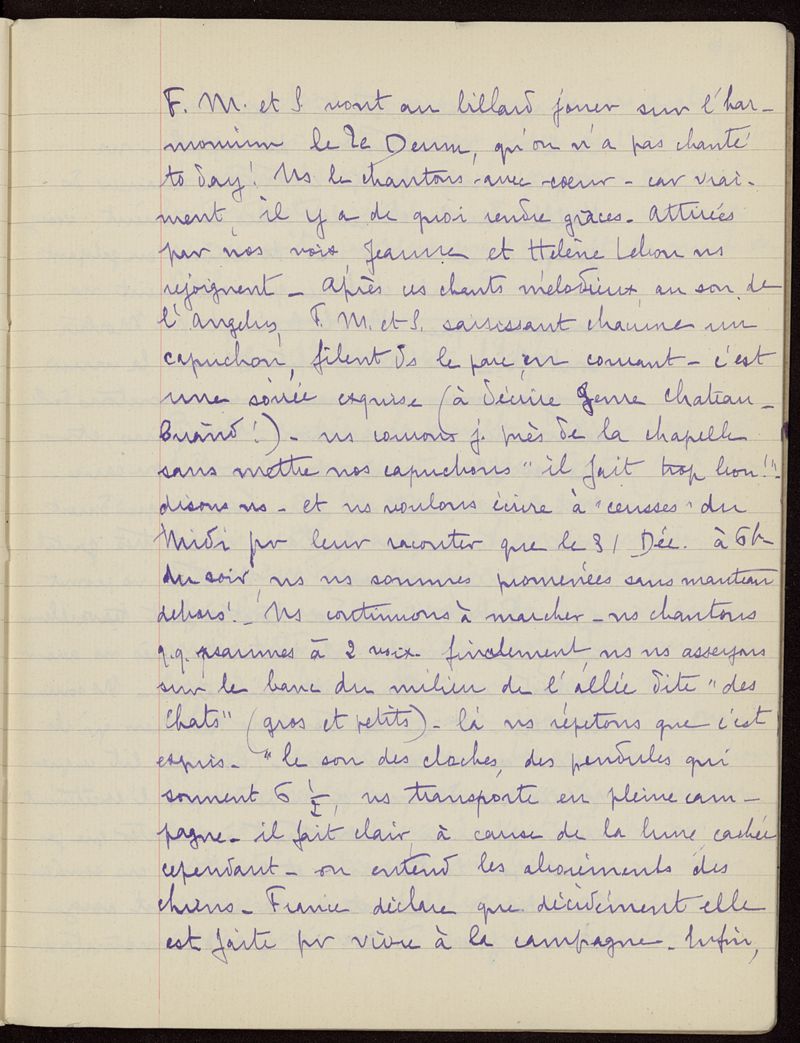 F. M. et S vont au billard jouer sur l'har-
monium le Te Deum, qu'on n'a pas chanté
to day! Ns le chantons avec coeur - car vrai-
ment, il y a de quoi rendre grâces - Attirées
par nos voix Jeanne et Hélène Lebon ns
rejoignent - Après ces chants mélodieux, au son de
l'Angelus, F. M. et S. saisissant chacune un
capuchon, filent ds le parc en courant - c'est
une soirée exquise (à décrire genre Chateau-
briand!) - ns courons j. près de la chapelle
sans mettre nos capuchons "il fait trop bon!"
disons ns - et ns voulons écrire à "ceusses" du
Midi pr leur raconter que le 31 Déc. à 6h
du soir, ns ns sommes promenées sans manteau
dehors! - Ns continuons à marcher - ns chantons
q.q. psaumes à 2 voix - finalement, ns ns asseyons
sur le banc du milieu de l'allée dite "des
Chats" (gros et petits) - là ns répetons que c'est
exquis - "le son des cloches, des pendules qui
sonnent 6 1/2, ns transporte en pleine cam-
pagne - il fait clair, à cause de la lune, cachée
cependant - on entend les aboiements des
chiens - France déclare que décidément elle
est faite pr vivre à la campagne - Enfin,